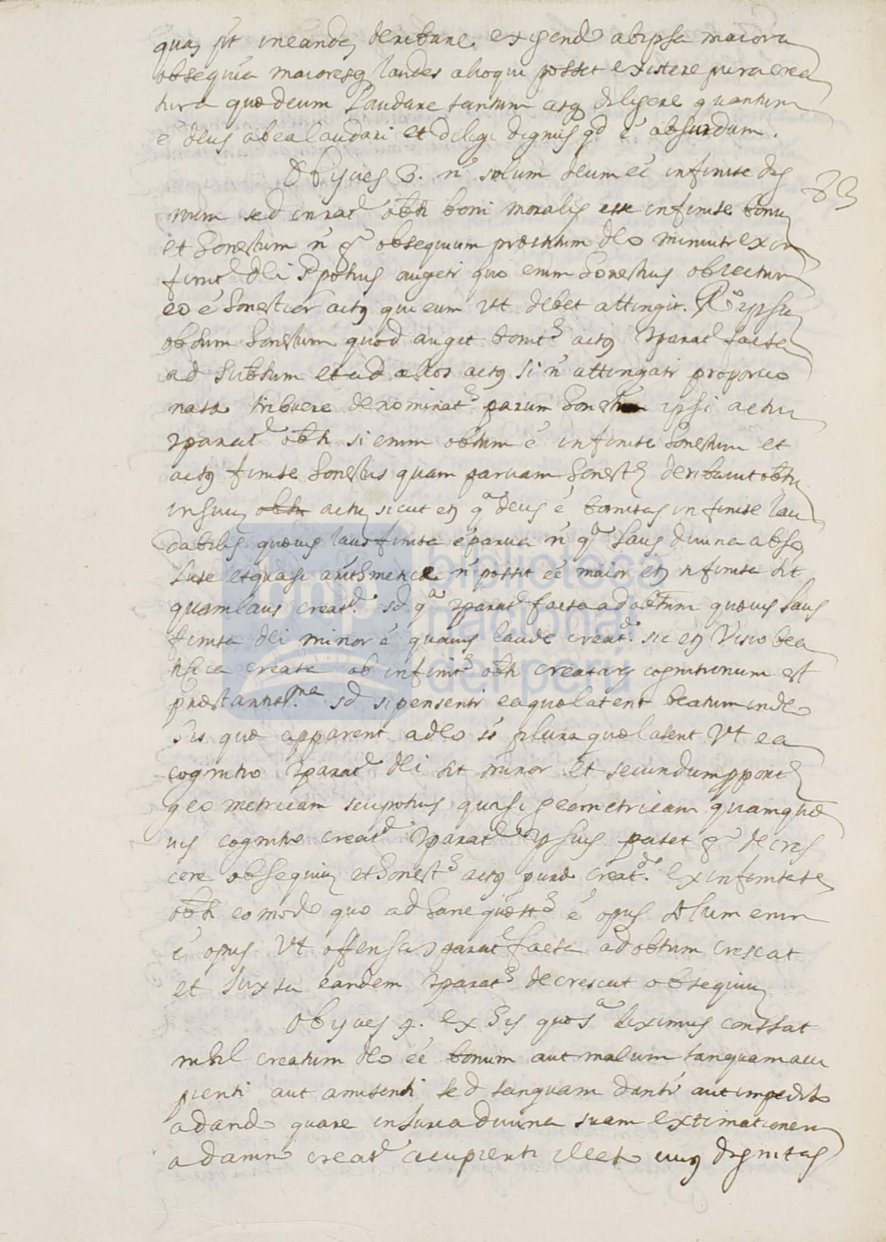 quas sit in eande deribare exigend ab ipsa maiora
obsequia maioresq laudes alioqui posset existere pura crea
tura quæ deum laudare tantum atq diligere quantum
é deus ab ea laudari et diligi dignus qd é absurdum.
Obijcies 3. n solum deum eé infinite dig
83
num sed in rat obti boni moralis esse infinite bonu
et honestum n obsequium præstitum deo minuitr ex in
finit dei potius augeri quo enim honestius obiectum
eo é honestior actq qui eum ut debet attingit. R ipsu
obtum honestum quod auget bonit actq parat facta
ad subtum et ad alios actq si n attingatr proporcio
nata tribuere denominat parum honestam ipsi actui
parat obti si enim obtum é infinite honestum et
actq finite honestus quam parvam honest deribavit obtu
in suu actu sicut et q deus é bonitas infinite lau
dabilis quævis laus finita é parva n q laus divina abso
lute et quasi arithmetice n possit eé maior et infinita sit
quam laus creat. sd q parat facta ad obtum quævis laus
finita dei minor é quavis laude creat. sic et visio bea
tifica creata ob infinit obti creataris cognitionum est
præstantiss. sd si pensentr ea quæ latent beatum in deo
his quæ apparent adeo st plura quæ latent ut ea
cognitio parat dei sit minor et secundum pport
geometricam seu potius quasi geometricam quam quæ
vis cognitio creat parat ipsius patet de cres
cere obsequiu et honest actq puræ creat. ex infinitate
obti eo modo quo ad hanc quæst é opus solum enim
é opus ut offensa parat facta ad obtum crescat
et iuxta eandem parat decrescat obsequiu
Obijcies 4. ex his quæ diximus constat
nihil creatum deo eé bonum aut malum tanquam acci
pienti aut amitenti sed tanquam danti aut impedito
a dand quare iniuria divina suam extimationem
a damn creat accipienti licet cuiq dignitas